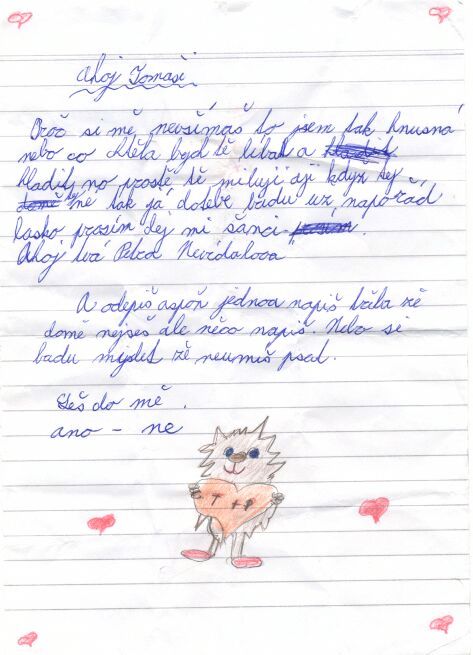 Ahoj Tomaši
Proč si mě nevšímaš to jsem tak hnusna
nebo co chtěla bych tě libat a
hladit no prostě tě miluji aji když ty
ne tak já dotebe budu už napořad
lasko prosím dej mi šanci
Ahoj tvá Petra Nevrdalova
A odepiš aspoň jednou napiš třeba že
domě nejseš ale něco napiš. Nebo si
budu myslet že neumiš psat.
Seš do mě.
ano - ne
T + P